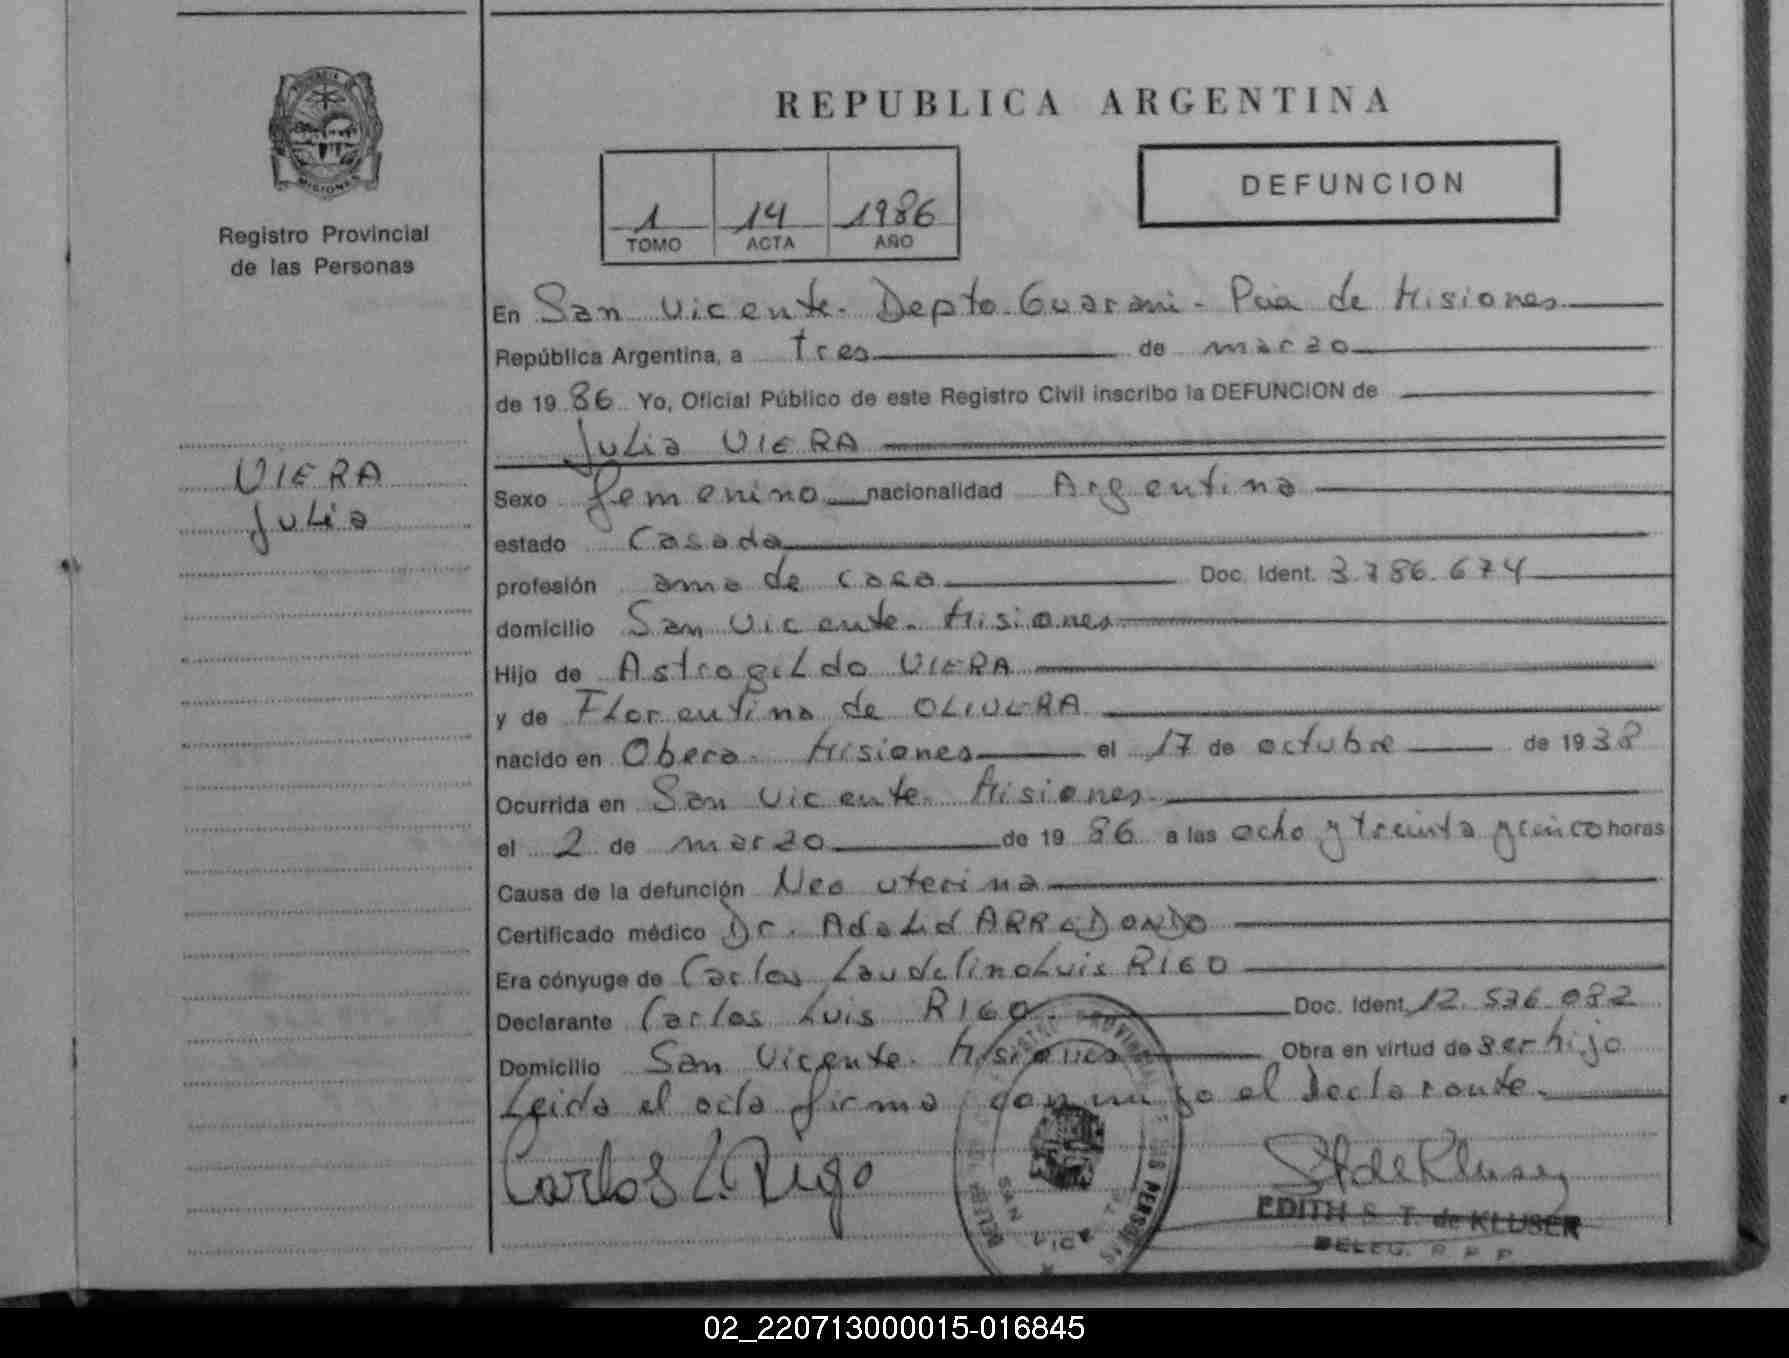 REPUBLICA ARGENTINA
MISIONES
Registro Provincial
de las Personas
1 14 1986
TOMO ACTA AÑO
DEFUNCION
En San Vicente. Depto. Guarani - Pcia de Misiones
República Argentina, a tres de marzo
de 1986 Yo, Oficial Público de este Registro Civil inscribo la DEFUNCION de
Julia VIERA
VIERA
Julia
Sexo femenino nacionalidad Argentina
estado Casada
profesión ama de casa Doc. Ident. 3.786.674
domicilio San Vicente. Misiones
Hijo de Astrogildo VIERA
y de Florentina de OLIVERA
nacido en Obera. Misiones el 17 de octubre de 1938
Ocurrida en San Vicente. Misiones
el 2 de marzo de 1986 a las ocho y treinta y cinco horas
Causa de la defunción Neo uterina
Certificado médico Dr. Adalid ARREDONDO
Era cónyuge de Carlos Laudelino Luis RIGO
Declarante Carlos Luis RIGO Doc. Ident. 12.536.082
Domicilio San Vicente. Misiones Obra en virtud de ser hijo
Leida el acta firma conmigo el declarante.
Carlos L. Rigo
EDITH S. T. de KLUSER
DELEG. R. P. P.
02_220713000015-016845